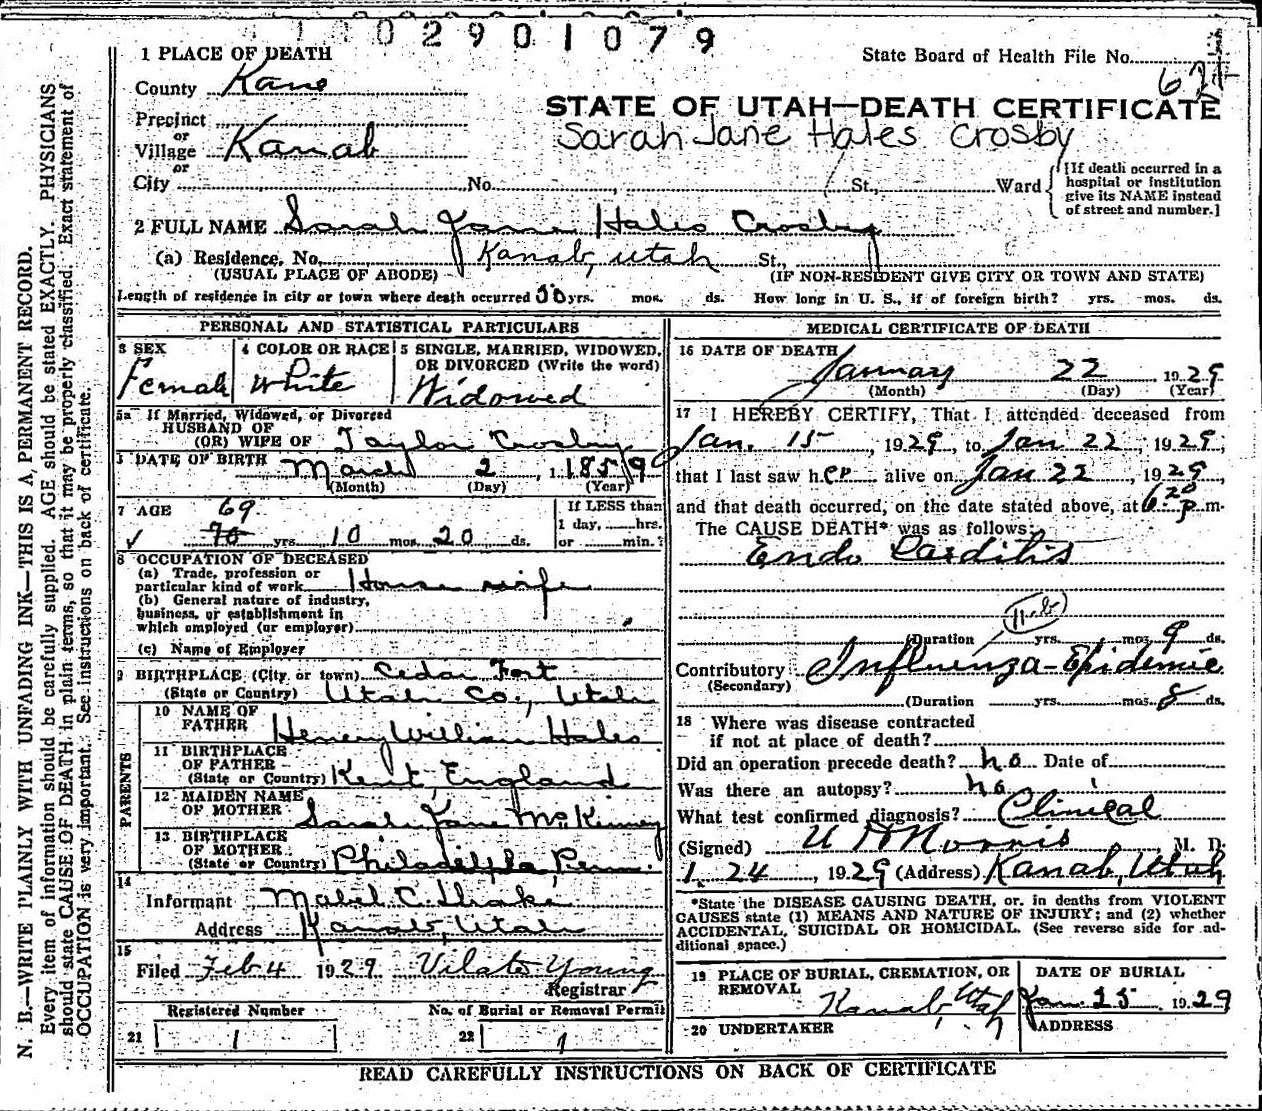 1 0 0 2 9 0 1 0 7 9
1 PLACE OF DEATH
State Board of Health File No.
62
County Kane
STATE OF UTAH—DEATH CERTIFICATE
Precinct
or
Sarah Jane Hales Crosby
Village Kanab
or
City No. St., Ward
[If death occurred in a
hospital or institution
give its NAME instead
of street and number.]
2 FULL NAME Sarah Jane Hales Crosby
(a) Residence, No. Kanab, Utah St.,
(USUAL PLACE OF ABODE) (IF NON-RESIDENT GIVE CITY OR TOWN AND STATE)
Length of residence in city or town where death occurred 50 yrs. mos. ds. How long in U. S., if of foreign birth? yrs. mos. ds.
PERSONAL AND STATISTICAL PARTICULARS
3 SEX
Female
4 COLOR OR RACE
White
5 SINGLE, MARRIED, WIDOWED,
OR DIVORCED (Write the word)
Widowed
5a If Married, Widowed, or Divorced
HUSBAND OF
(OR) WIFE OF Taylor Crosby
DATE OF BIRTH March 2 1 1859
(Month) (Day) (Year)
7 AGE 69
70 yrs. 10 mos. 20 ds.
If LESS than
1 day, hrs.
or min.?
8 OCCUPATION OF DECEASED
(a) Trade, profession or
particular kind of work House wife
(b) General nature of industry,
business, or establishment in
which employed (or employer)
(c) Name of Employer
9 BIRTHPLACE (City or town) Cedar Fort
(State or Country) Utah Co., Utah
PARENTS
10 NAME OF
FATHER Henery William Hales
11 BIRTHPLACE
OF FATHER
(State or Country) Kent, England
12 MAIDEN NAME
OF MOTHER Sarah Jane McKinney
13 BIRTHPLACE
OF MOTHER
(State or Country) Philadelpla, Penn.
14
Informant Mabel C.
Address Kanab, Utah
15
Filed Feb 4 1929 Vilate Young
Registrar
Registered Number No. of Burial or Removal Permit
21 1 22 1
MEDICAL CERTIFICATE OF DEATH
16 DATE OF DEATH
January 22 1929
(Month) (Day) (Year)
17 I HEREBY CERTIFY, That I attended deceased from
Jan. 15, 1929, to Jan 22, 1929,
that I last saw her alive on Jan 22, 1929,
and that death occurred, on the date stated above, at 6:20 P m.
The CAUSE DEATH* was as follows:
Endo Carditis
11-b
(Duration yrs. mos. 9 ds.
Contributory Influenza-Epidemic
(Secondary)
(Duration yrs. mos. 8 ds.
18 Where was disease contracted
if not at place of death?
Did an operation precede death? no Date of
Was there an autopsy? no
What test confirmed diagnosis? Clinical
(Signed) Norris, M. D.
1, 24, 1929 (Address) Kanab, Utah
*State the DISEASE CAUSING DEATH, or, in deaths from VIOLENT
CAUSES state (1) MEANS AND NATURE OF INJURY; and (2) whether
ACCIDENTAL, SUICIDAL OR HOMICIDAL. (See reverse side for ad-
ditional space.)
19 PLACE OF BURIAL, CREMATION, OR
REMOVAL
Kanab, Utah
DATE OF BURIAL
Jan. 25 1929
20 UNDERTAKER ADDRESS
READ CAREFULLY INSTRUCTIONS ON BACK OF CERTIFICATE
N. B.—WRITE PLAINLY WITH UNFADING INK—THIS IS A PERMANENT RECORD.
Every item of information should be carefully supplied. AGE should be stated EXACTLY. PHYSICIANS
should state CAUSE OF DEATH in plain terms, so that it may be properly classified. Exact statement of
OCCUPATION is very important. See instructions on back of certificate.